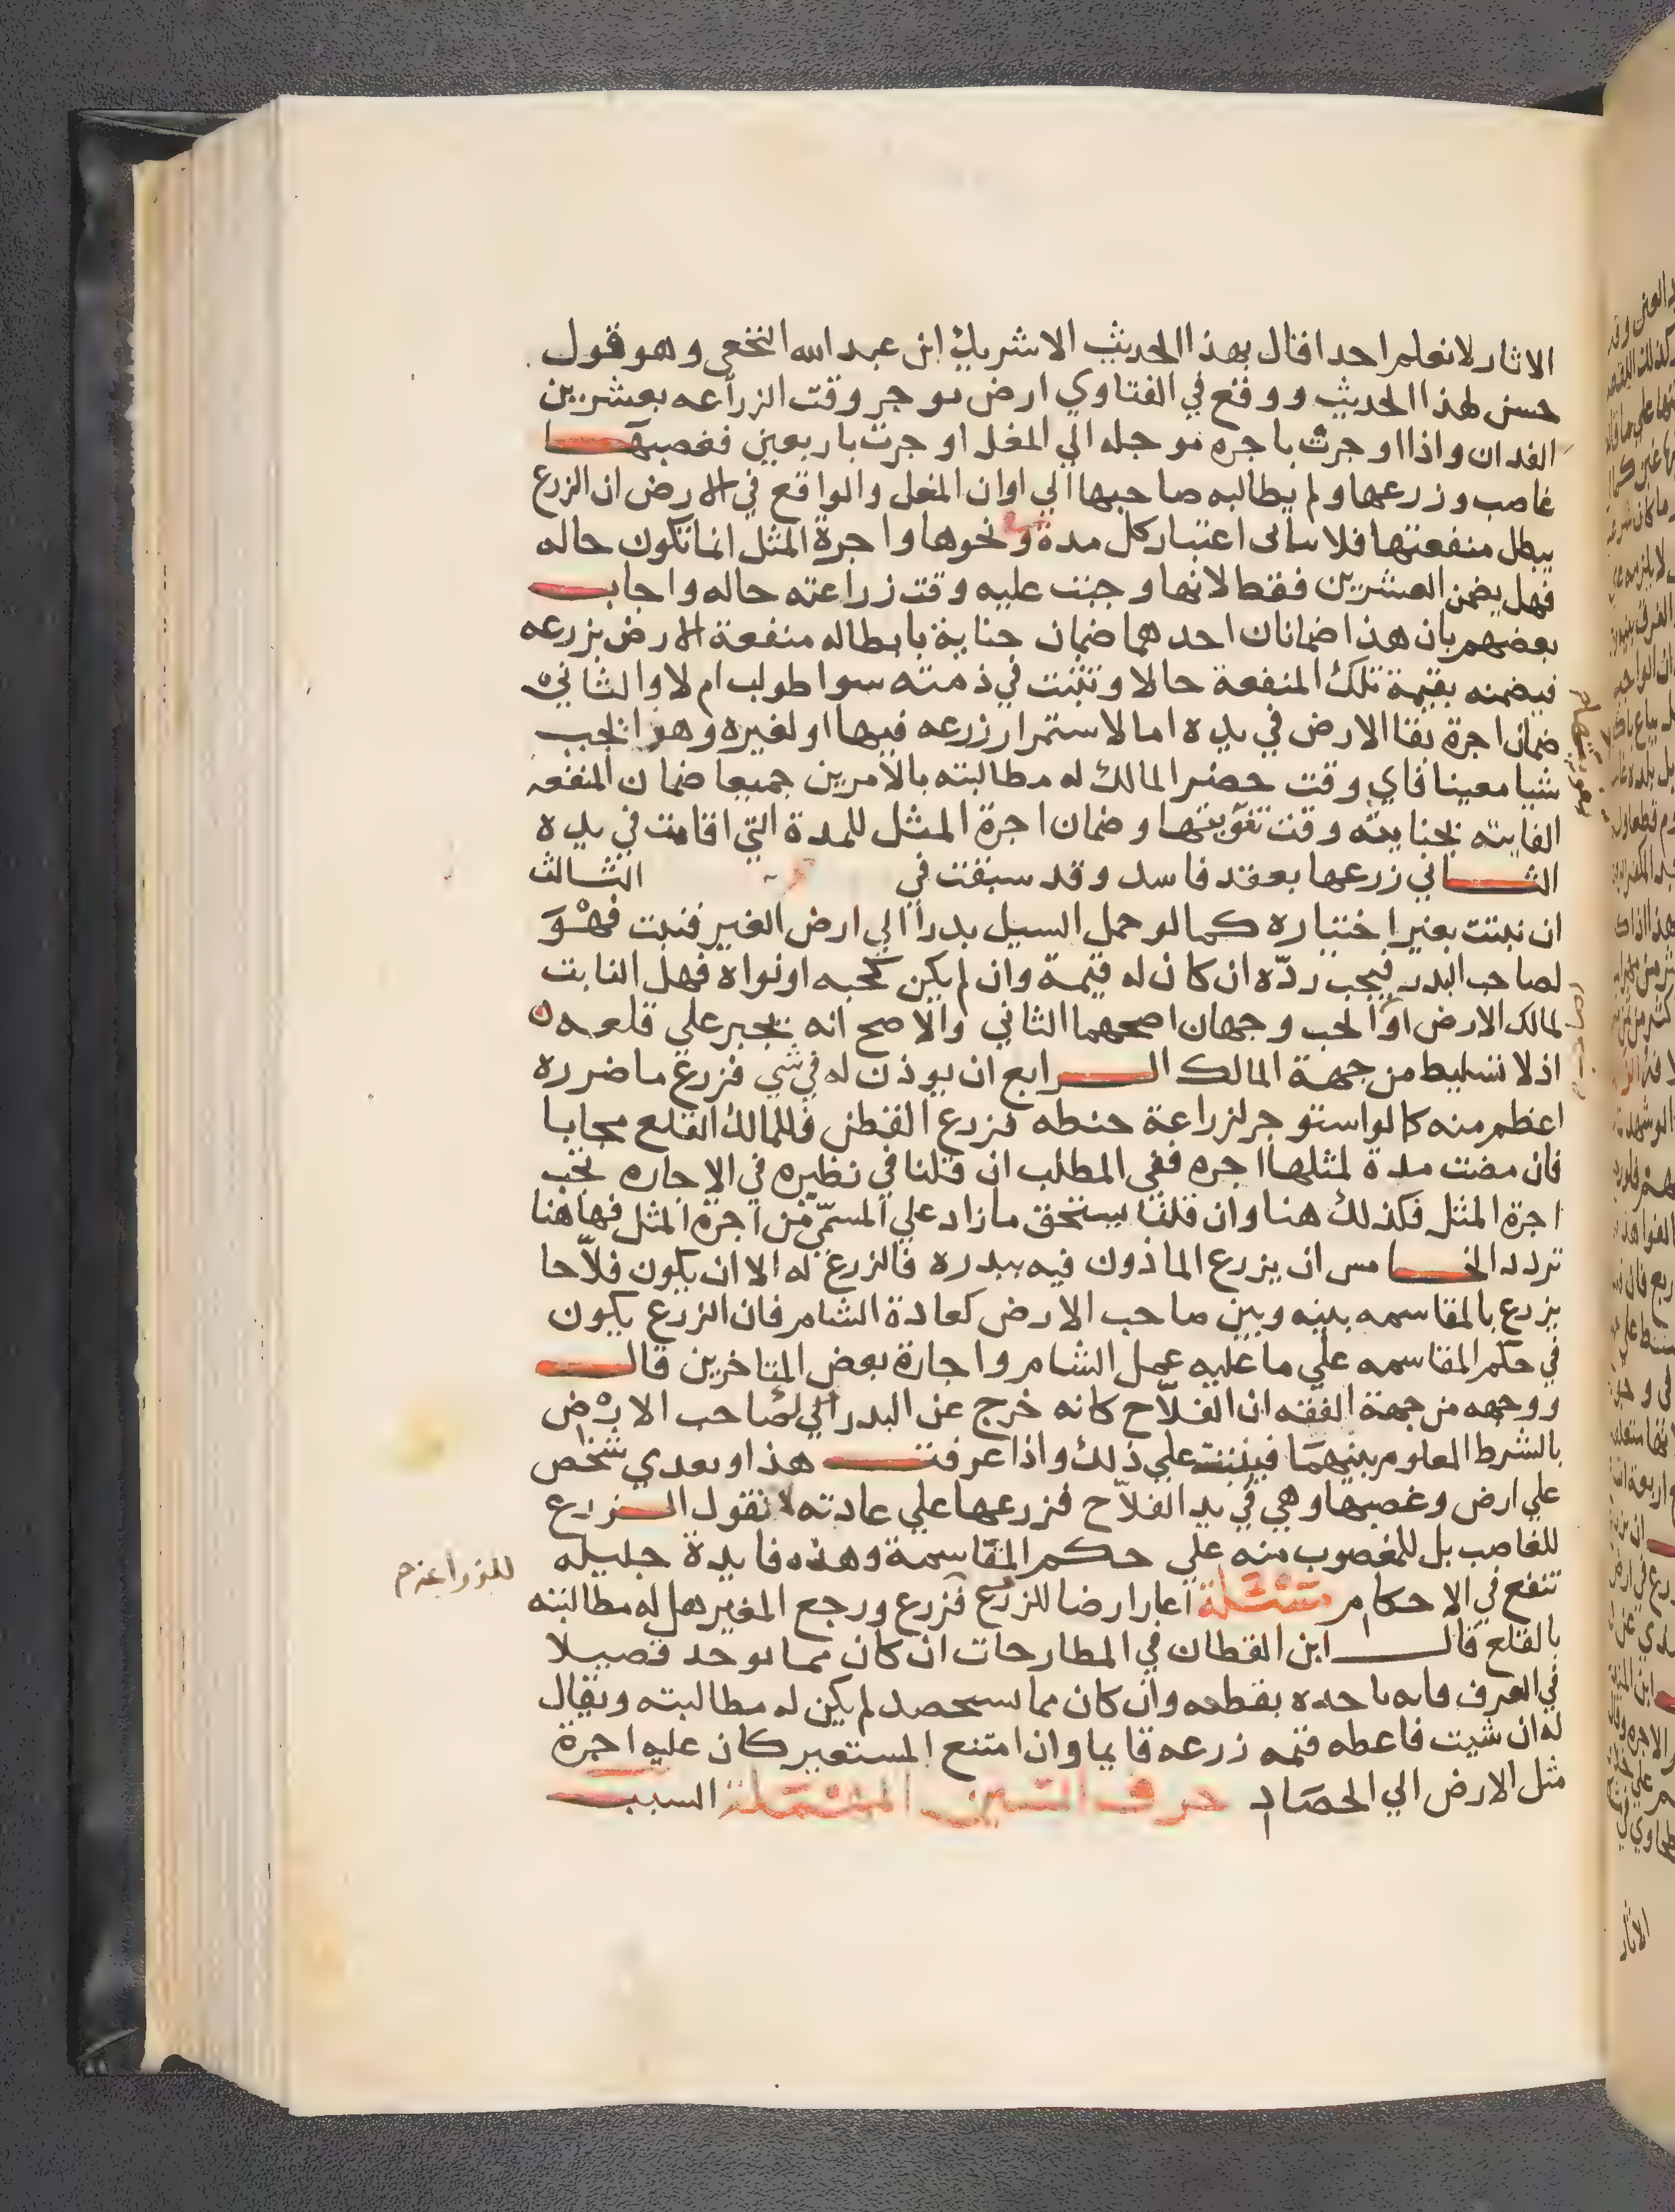 الاثار لا نعلم احدا قال بهذا الحديث الا شريك ابن عبد الله النخعي وهو قول
حسن لهذا الحديث ووقع في الفتاوي ارض توجر وقت الزراعه بعشرين
الفدان واذا اوجرت باجره موجله الي المغل اوجرت باربعين فغصبها
غاصب وزرعها ولم يطالبه صاحبها الي اوان المغل والواقع في الارض ان الزرع
يبطل منفعتها فلا ساتى اعتبار كل مدة ونحوها واجرة المثل انما تكون حاله
فهل يضمن العشرين فقط لانها وجبت عليه وقت زراعته حاله واجاب
بعضهم بان هذا ضمانان احدهما ضمان جناية بابطاله منفعة الارض بزرعه
فيضمنه بقيمة تلك المنفعة حالا وتثبت في ذمته سوا طولب ام لا والثاني
ضمان اجرة بقا الارض في يده اما لاستمرار زرعه فيها او لغيره وهذا يجب
شيا معينا فاي وقت حضر المالك له مطالبته بالامرين جميعا ضمان المنفعه
الفايته بجنايته وقت تفويتها وضمان اجرة المثل للمدة التي اقامت في يده
الثاني زرعها بعقد فاسد وقد سبقت في الثالث
ان نبتت بغير اختياره كما لو حمل السيل بدرا الي ارض الغير فنبت فهو
لصاحب البدر فيجب رده ان كان له قيمة وان لم يكن كحبه او نواه فهل النابت
لمالك الارض او الحب وجهان اصحهما الثاني والاصح انه يجبر علي قلعه
اذ لا تسليط من جهة المالك الرابع ان يوذن له في شي فزرع ما ضرره
اعظم منه كما لو استوجر لزراعة حنطه فزرع القطن فللمالك القلع مجانا
فان مضت مدة لمثلها اجره ففي المطلب ان قلنا في نظيره في الاجاره تجب
اجرة المثل فكذلك هنا وان قلنا يستحق ما زاد علي المسمي من اجرة المثل فهاهنا
تردد الخامس ان يزرع الماذون فيه ببدره فالزرع له الا ان يكون فلاحا
يزرع بالمقاسمه بينه وبين صاحب الارض كعادة الشام فان الزرع يكون
في حكم المقاسمه علي ما عليه عمل الشام واجازه بعض المتاخرين قال
ووجهه من جهة الفقه ان الفلاح كانه خرج عن البدر الي لصاحب الارض
بالشرط المعلوم بينهما فيثبت علي ذلك واذا عرفت هذا وتعدي شخص
علي ارض وغصبها وهي في يد الفلاح فزرعها علي عادته لا نقول الزرع
للغاصب بل للمغصوب منه علي حكم المقاسمة وهذه فايدة جليله
تنفع في الاحكام مسئلة اعار ارضا للزرع فزرع ورجع المعير هل له مطالبته
للزراعة م
بالقلع قال ابن القطان في المطارحات ان كان مما يوخد قصيلا
في العرف فانه ياخده بقطعه وان كان مما يستحصد لم يكن له مطالبته ويقال
له ان شيت فاعطه قيمه زرعه قايما وان امتنع المستعير كان عليه اجرة
مثل الارض الي الحصاد حرف السين المهملة السبب